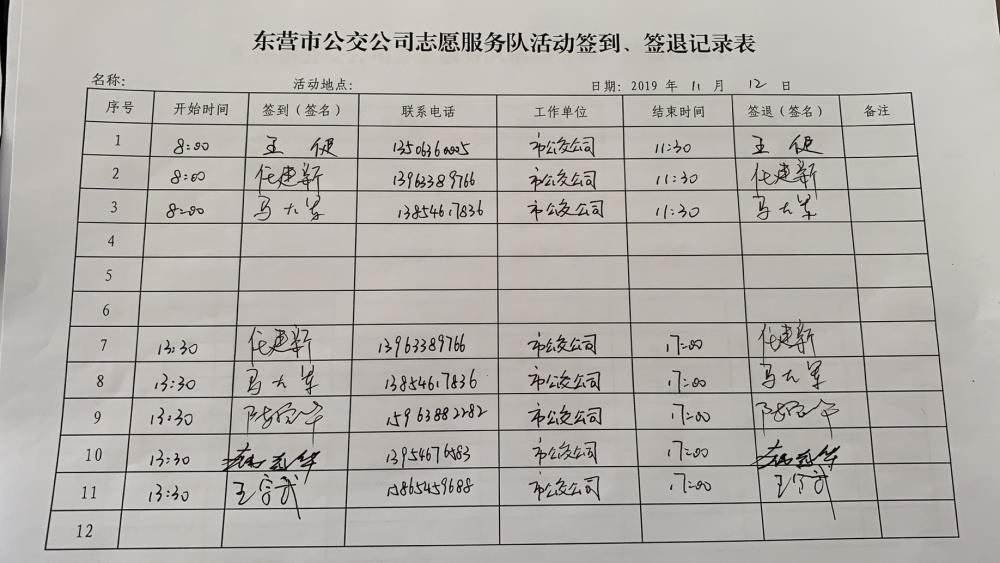 东营市公交公司志愿服务队活动签到、签退记录表
名称: 活动地点: 日期: 2019 年 11 月 12 日
序号 开始时间 签到(签名) 联系电话 工作单位 结束时间 签退(签名) 备注
1 8:00 王健 13506360005 市公交公司 11:30 王健
2 8:00 任建新 13963389766 市公交公司 11:30 任建新
3 8:00 马大军 13854617836 市公交公司 11:30 马大军
4
5
6
7 13:30 任建新 13963389766 市公交公司 17:00 任建新
8 13:30 马大军 13854617836 市公交公司 17:00 马大军
9 13:30 15963882282 市公交公司 17:00
10 13:30 13954676583 市公交公司 17:00
11 13:30 15865459688 市公交公司 17:00
12